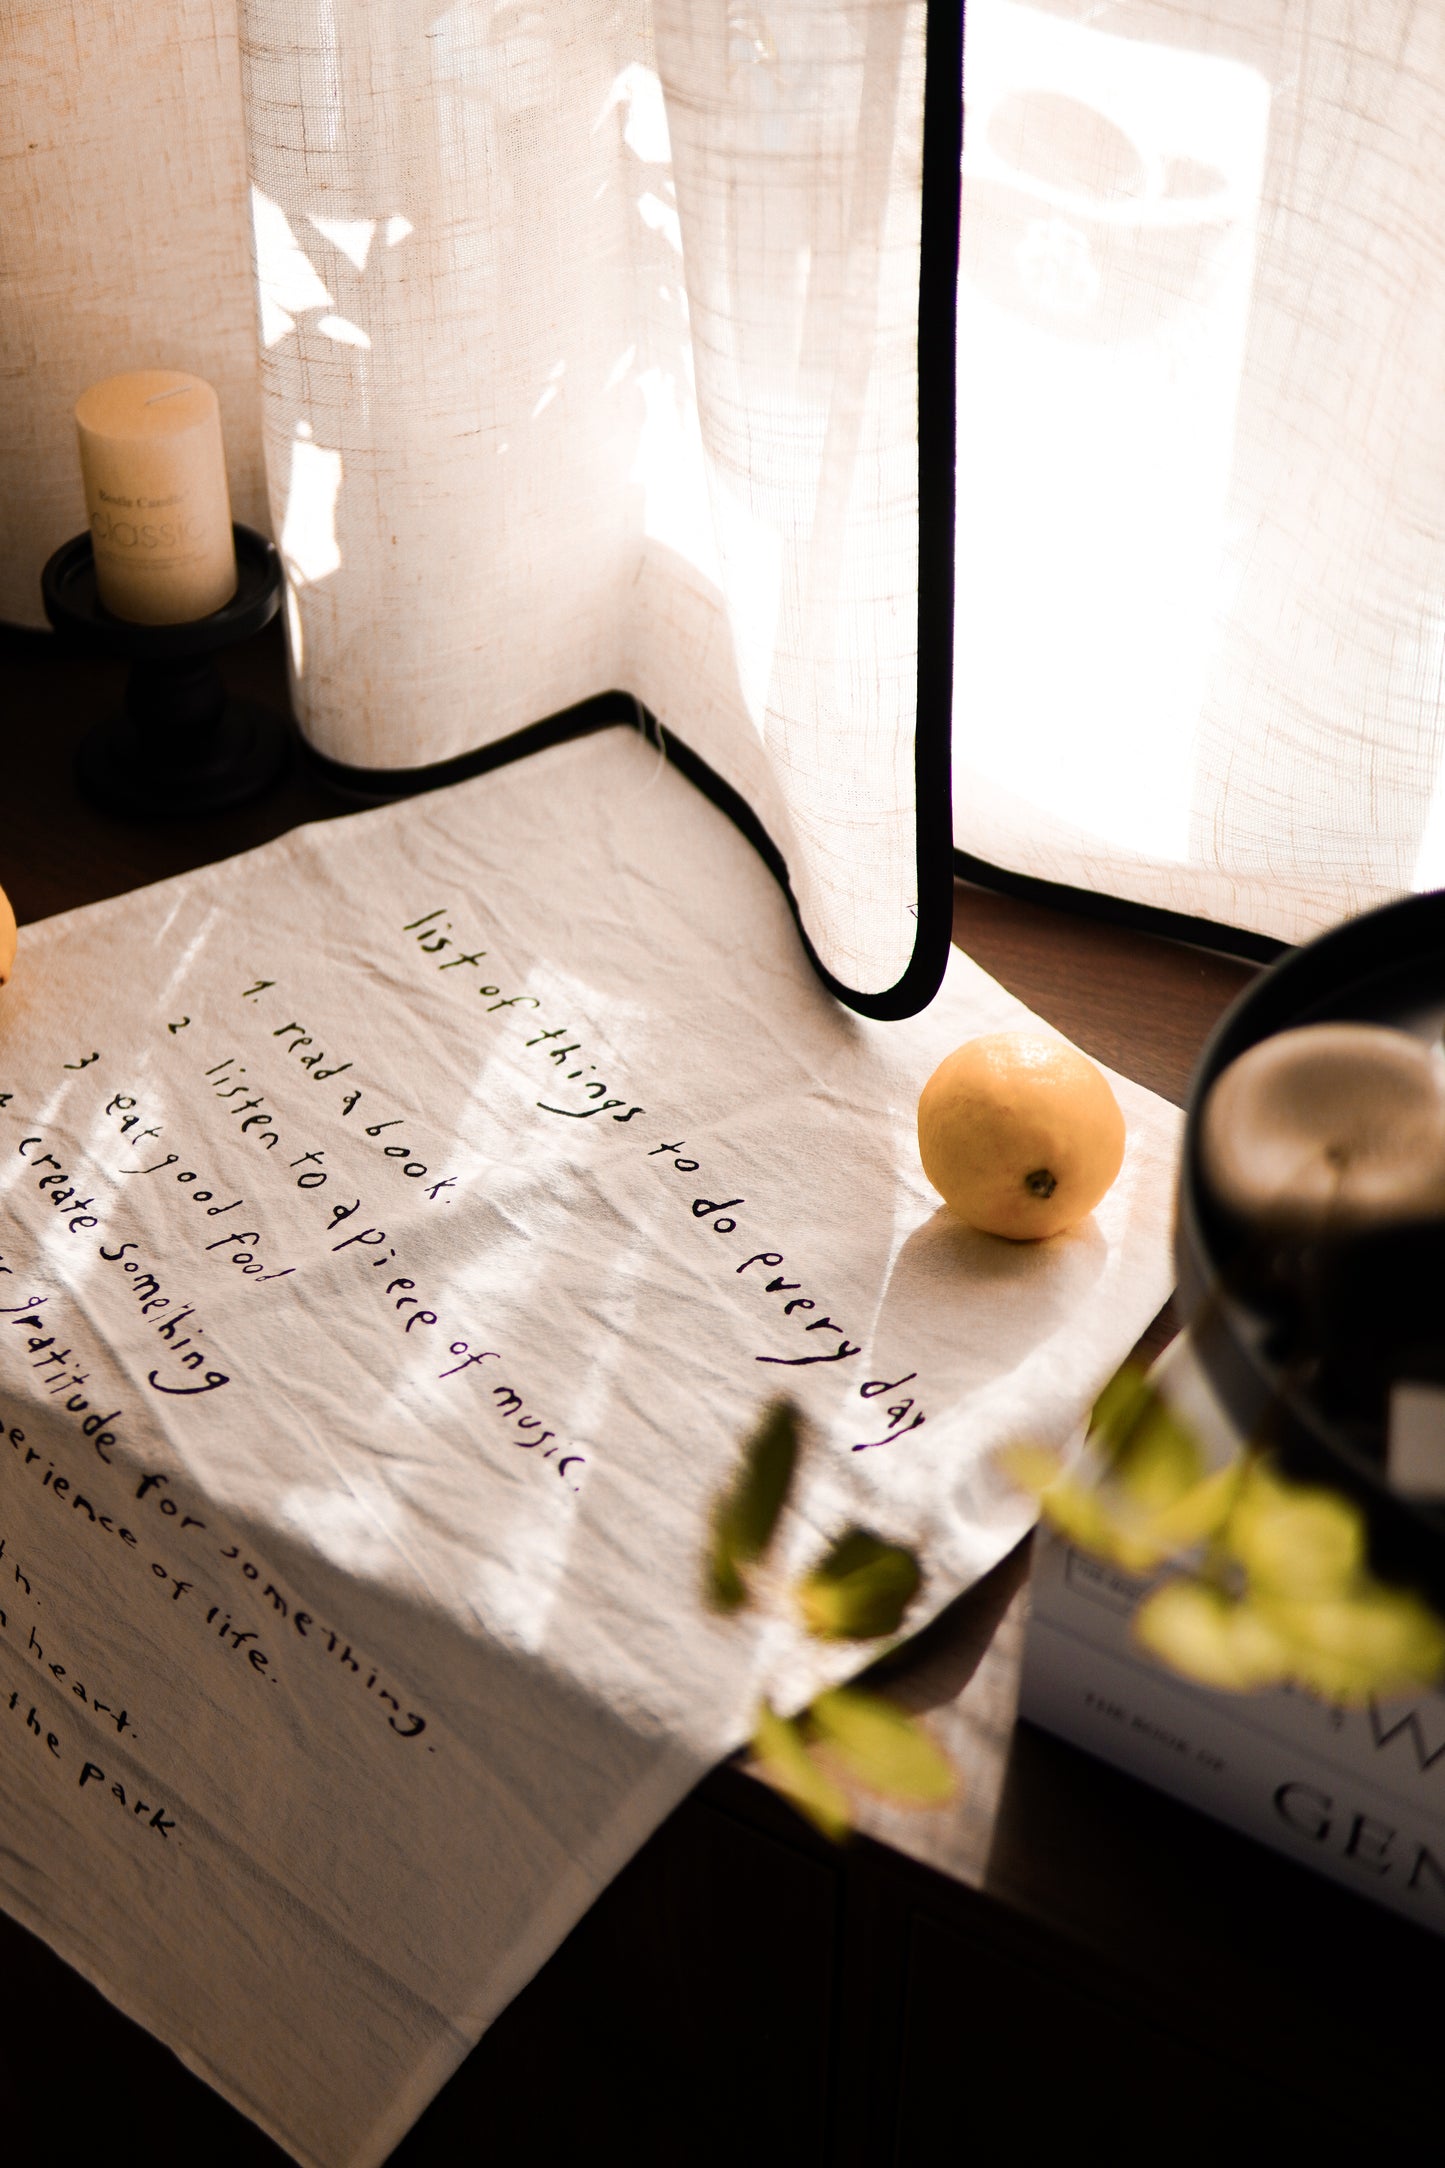 list of things to do every day
1. read a book.
2 listen to a piece of music.
3 eat good food
create something
gratitude for something.
of life.
heart.
the park.
classic
THE BOOK OF
GEN